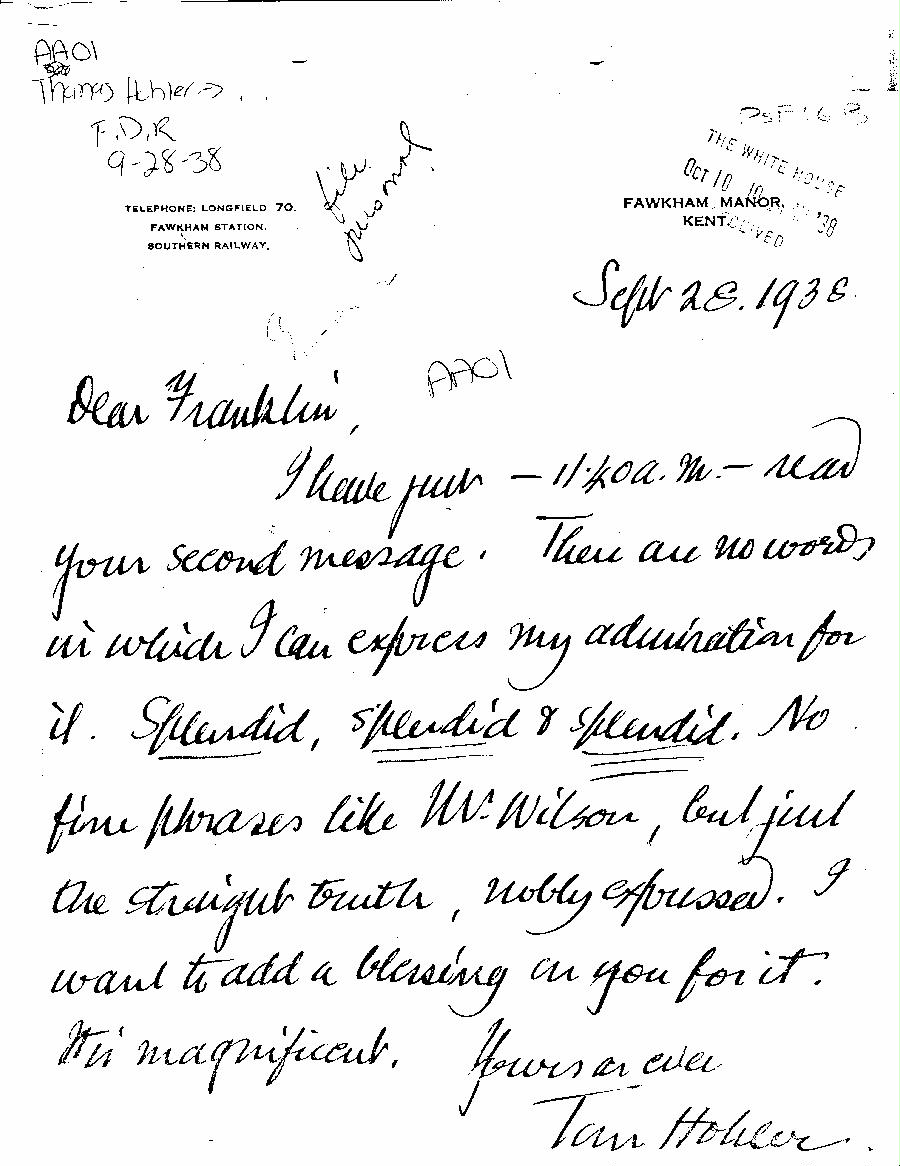 AA01
Thomas Hohler →
F.D.R
9-28-38
file
personal
PSF : G B
THE WHITE HOUSE
OCT 10 '38
RECEIVED
TELEPHONE: LONGFIELD 70.
FAWKHAM STATION.
SOUTHERN RAILWAY.
FAWKHAM MANOR,
KENT.
Sept 28. 1938.
AA01
Dear Franklin,
I have just – 11.40 a.m. – read
your second message. There are no words
in which I can express my admiration for
it. Splendid, splendid & splendid. No
fine phrases like Mr. Wilson, but just
the straight truth, nobly expressed. I
want to add a blessing on you for it.
It is magnificent.
Yours as ever
Tom Hohler.